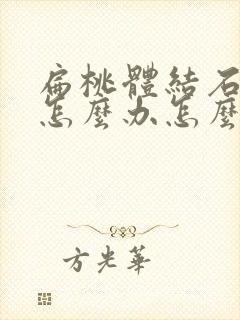 扁桃體結石
怎麼办怎麼
方光華